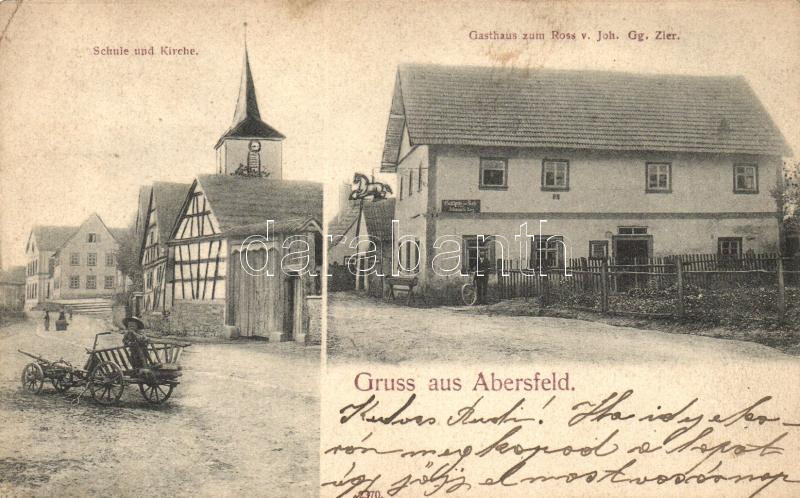 Schule und Kirche.
Gasthaus zum Ross v. Joh. Gg. Zier.
darabanth
Gruss aus Abersfeld.
Kedves Rudi! Ha idejeko-
rán megkapod a lapot
úgy jőjj el most vasárnap
2370.